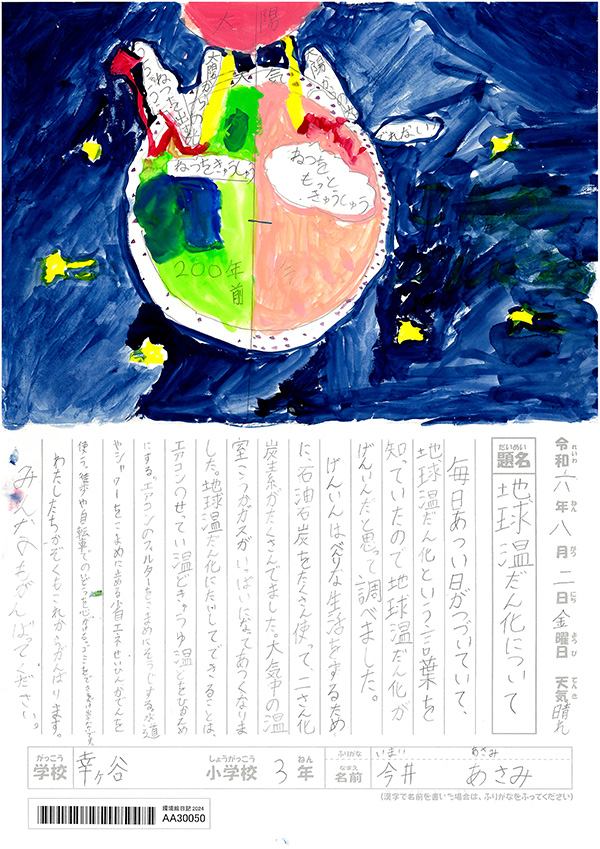 太陽
大気
ねつを出す
太陽からの
太陽からの
でれない
ねつをきゅうしゅう
ねつを
もっと
きゅうしゅう
200年
前
今
令和六年八月二日金曜日 天気 晴れ
れいわ ねん がつ にち ようび てんき
だいめい
題名
地球温だん化について
毎日あつい日がつづいていて、
地球温だん化という言葉を
知っていたので地球温だん化が
げんいんだと思って調べました。
げんいんはべんりな生活をするため
に、石油石炭をたくさん使って、二さん化
炭素がたくさんでました。大気中の温
室こうかガスがいっぱいになってあつくなりま
した。地球温だん化にたいしてできることは、
エアコンのせってい温どきゅうゆ温どをひかえめ
にする。エアコンのフィルターをこまめにそうじする。水道
やシャワーをこまめに止める。省エネせいひんかでんを
使う。
わたしたちかぞくもこれからがんばります。
みんなもがんばってください。
がっこう
学校
幸ヶ谷
しょうがっこう
小学校
3
ねん
年
ふりがな
いまい あさみ
なまえ
名前
今井 あさみ
(漢字で名前を書いた場合は、ふりがなをふってください)
環境絵日記2024
AA30050